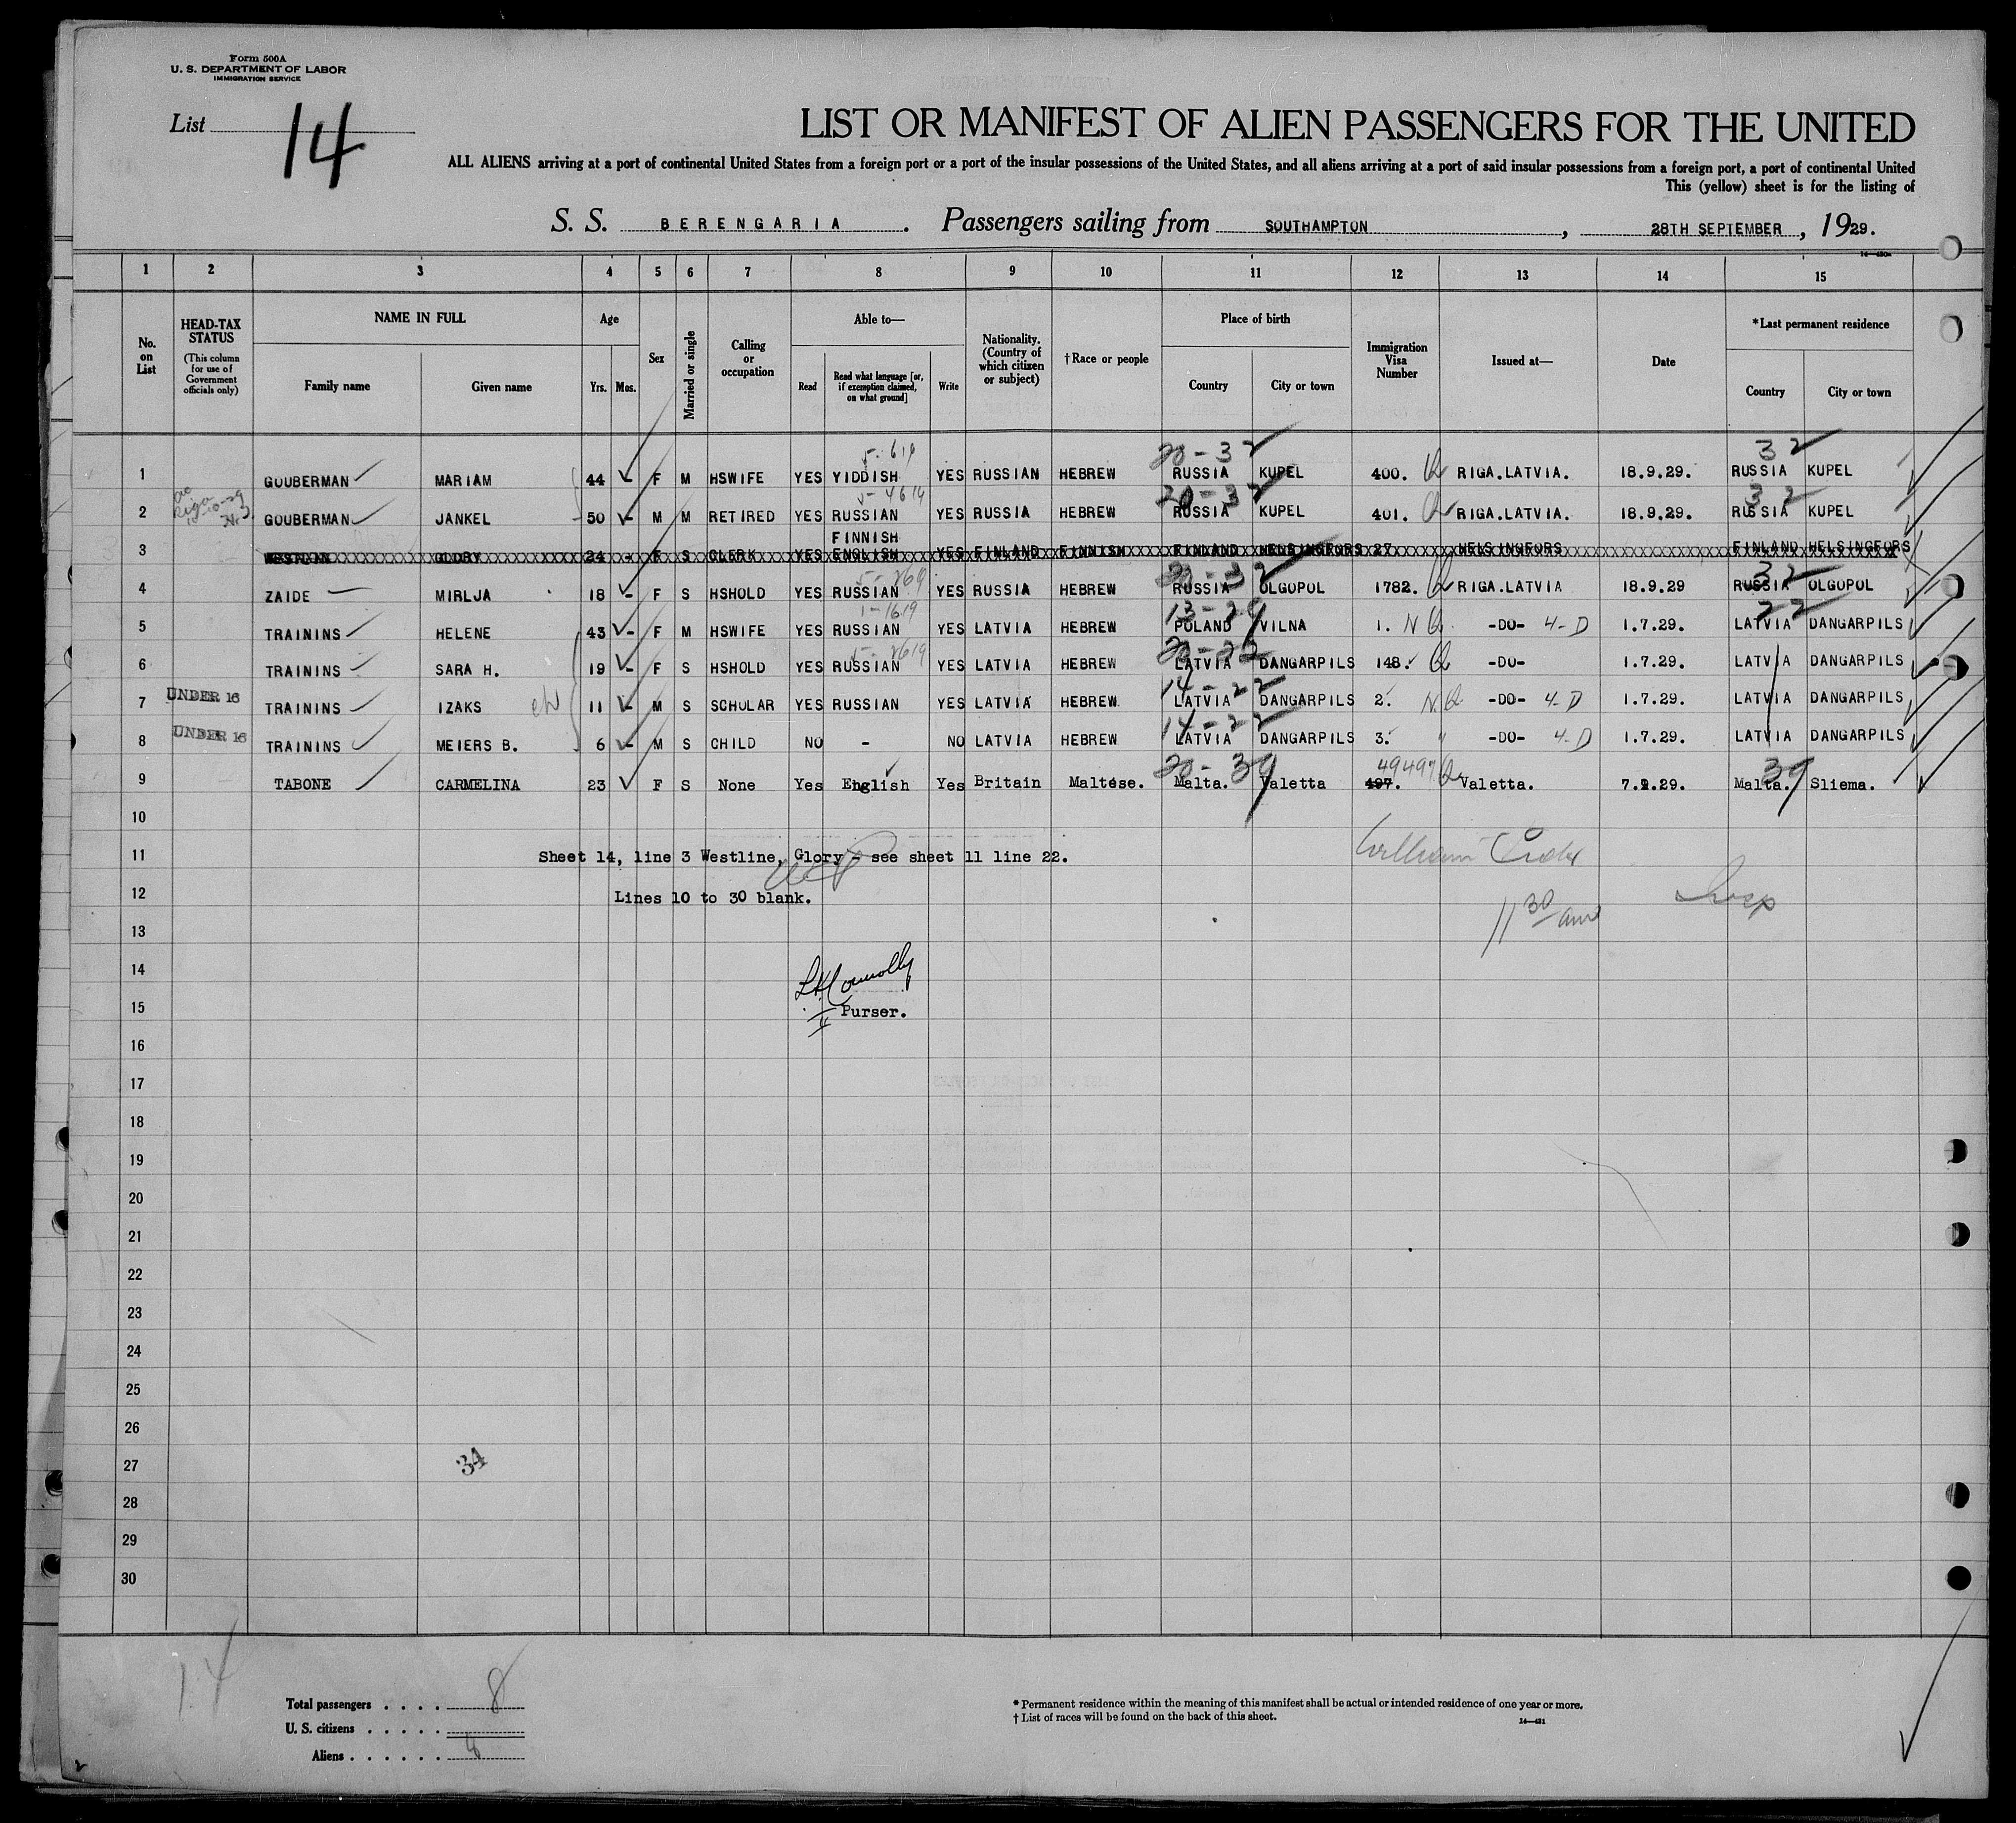 Form 500A
U. S. DEPARTMENT OF LABOR
IMMIGRATION SERVICE
List 14
LIST OR MANIFEST OF ALIEN PASSENGERS FOR THE UNITED
ALL ALIENS arriving at a port of continental United States from a foreign port or a port of the insular possessions of the United States, and all aliens arriving at a port of said insular possessions from a foreign port, a port of continental United
This (yellow) sheet is for the listing of
S. S. BERENGARIA. Passengers sailing from SOUTHAMPTON, 28TH SEPTEMBER, 1929.
1 2 3 4 5 6 7 8 9 10 11 12 13 14 15
No. on List
HEAD-TAX STATUS (This column for use of Government officials only)
NAME IN FULL
Family name Given name
Age
Yrs. Mos.
Sex
Married or single
Calling or occupation
Able to—
Read Read what language [or, if exemption claimed, on what ground] Write
Nationality. (Country of which citizen or subject)
†Race or people
Place of birth
Country City or town
Immigration Visa Number
Issued at—
Date
*Last permanent residence
Country City or town
20-32 32
1 GOUBERMAN MARIAM 44 - F M HSWIFE YES YIDDISH YES RUSSIAN HEBREW RUSSIA KUPEL 400. RIGA.LATVIA. 18.9.29. RUSSIA KUPEL
20-32 32
2 GOUBERMAN JANKEL 50 - M M RETIRED YES RUSSIAN YES RUSSIA HEBREW RUSSIA KUPEL 401. RIGA.LATVIA. 18.9.29. RUSSIA KUPEL
FINNISH
3 GLORY 24 - F S CLERK YES ENGLISH YES FINLAND FINNISH FINLAND HELSINGFORS 27 HELSINGFORS FINLAND HELSINGFORS
32
4 ZAIDE MIRLJA 18 - F S HSHOLD YES RUSSIAN YES RUSSIA HEBREW RUSSIA OLGOPOL 1782. RIGA.LATVIA 18.9.29 RUSSIA OLGOPOL
22
5 TRAININS HELENE 43 - F M HSWIFE YES RUSSIAN YES LATVIA HEBREW POLAND VILNA 1. -DO- 4-D 1.7.29. LATVIA DANGARPILS
20-22
6 TRAININS SARA H. 19 - F S HSHOLD YES RUSSIAN YES LATVIA HEBREW LATVIA DANGARPILS 148. -DO- 1.7.29. LATVIA DANGARPILS
14-22
7 UNDER 16 TRAININS IZAKS 11 - M S SCHOLAR YES RUSSIAN YES LATVIA HEBREW LATVIA DANGARPILS 2. -DO- 4-D 1.7.29. LATVIA DANGARPILS
14-22
8 UNDER 16 TRAININS MEIERS B. 6 - M S CHILD NO - NO LATVIA HEBREW LATVIA DANGARPILS 3. -DO- 4-D 1.7.29. LATVIA DANGARPILS
20-39 39
9 TABONE CARMELINA 23 F S None Yes English Yes Britain Maltese. Malta. Valetta 497. Valetta. Malta. Sliema.
10
11 Sheet 14, line 3 Westline, Glory - see sheet 11 line 22.
12 Lines 10 to 30 blank.
11 30 am
13
14
15 Purser.
16
17
18
19
20
21
22
23
24
25
26
27
34
28
29
30
14
Total passengers . . . . 8
U. S. citizens . . . . .
Aliens . . . . . . 8
* Permanent residence within the meaning of this manifest shall be actual or intended residence of one year or more.
† List of races will be found on the back of this sheet.
14—431